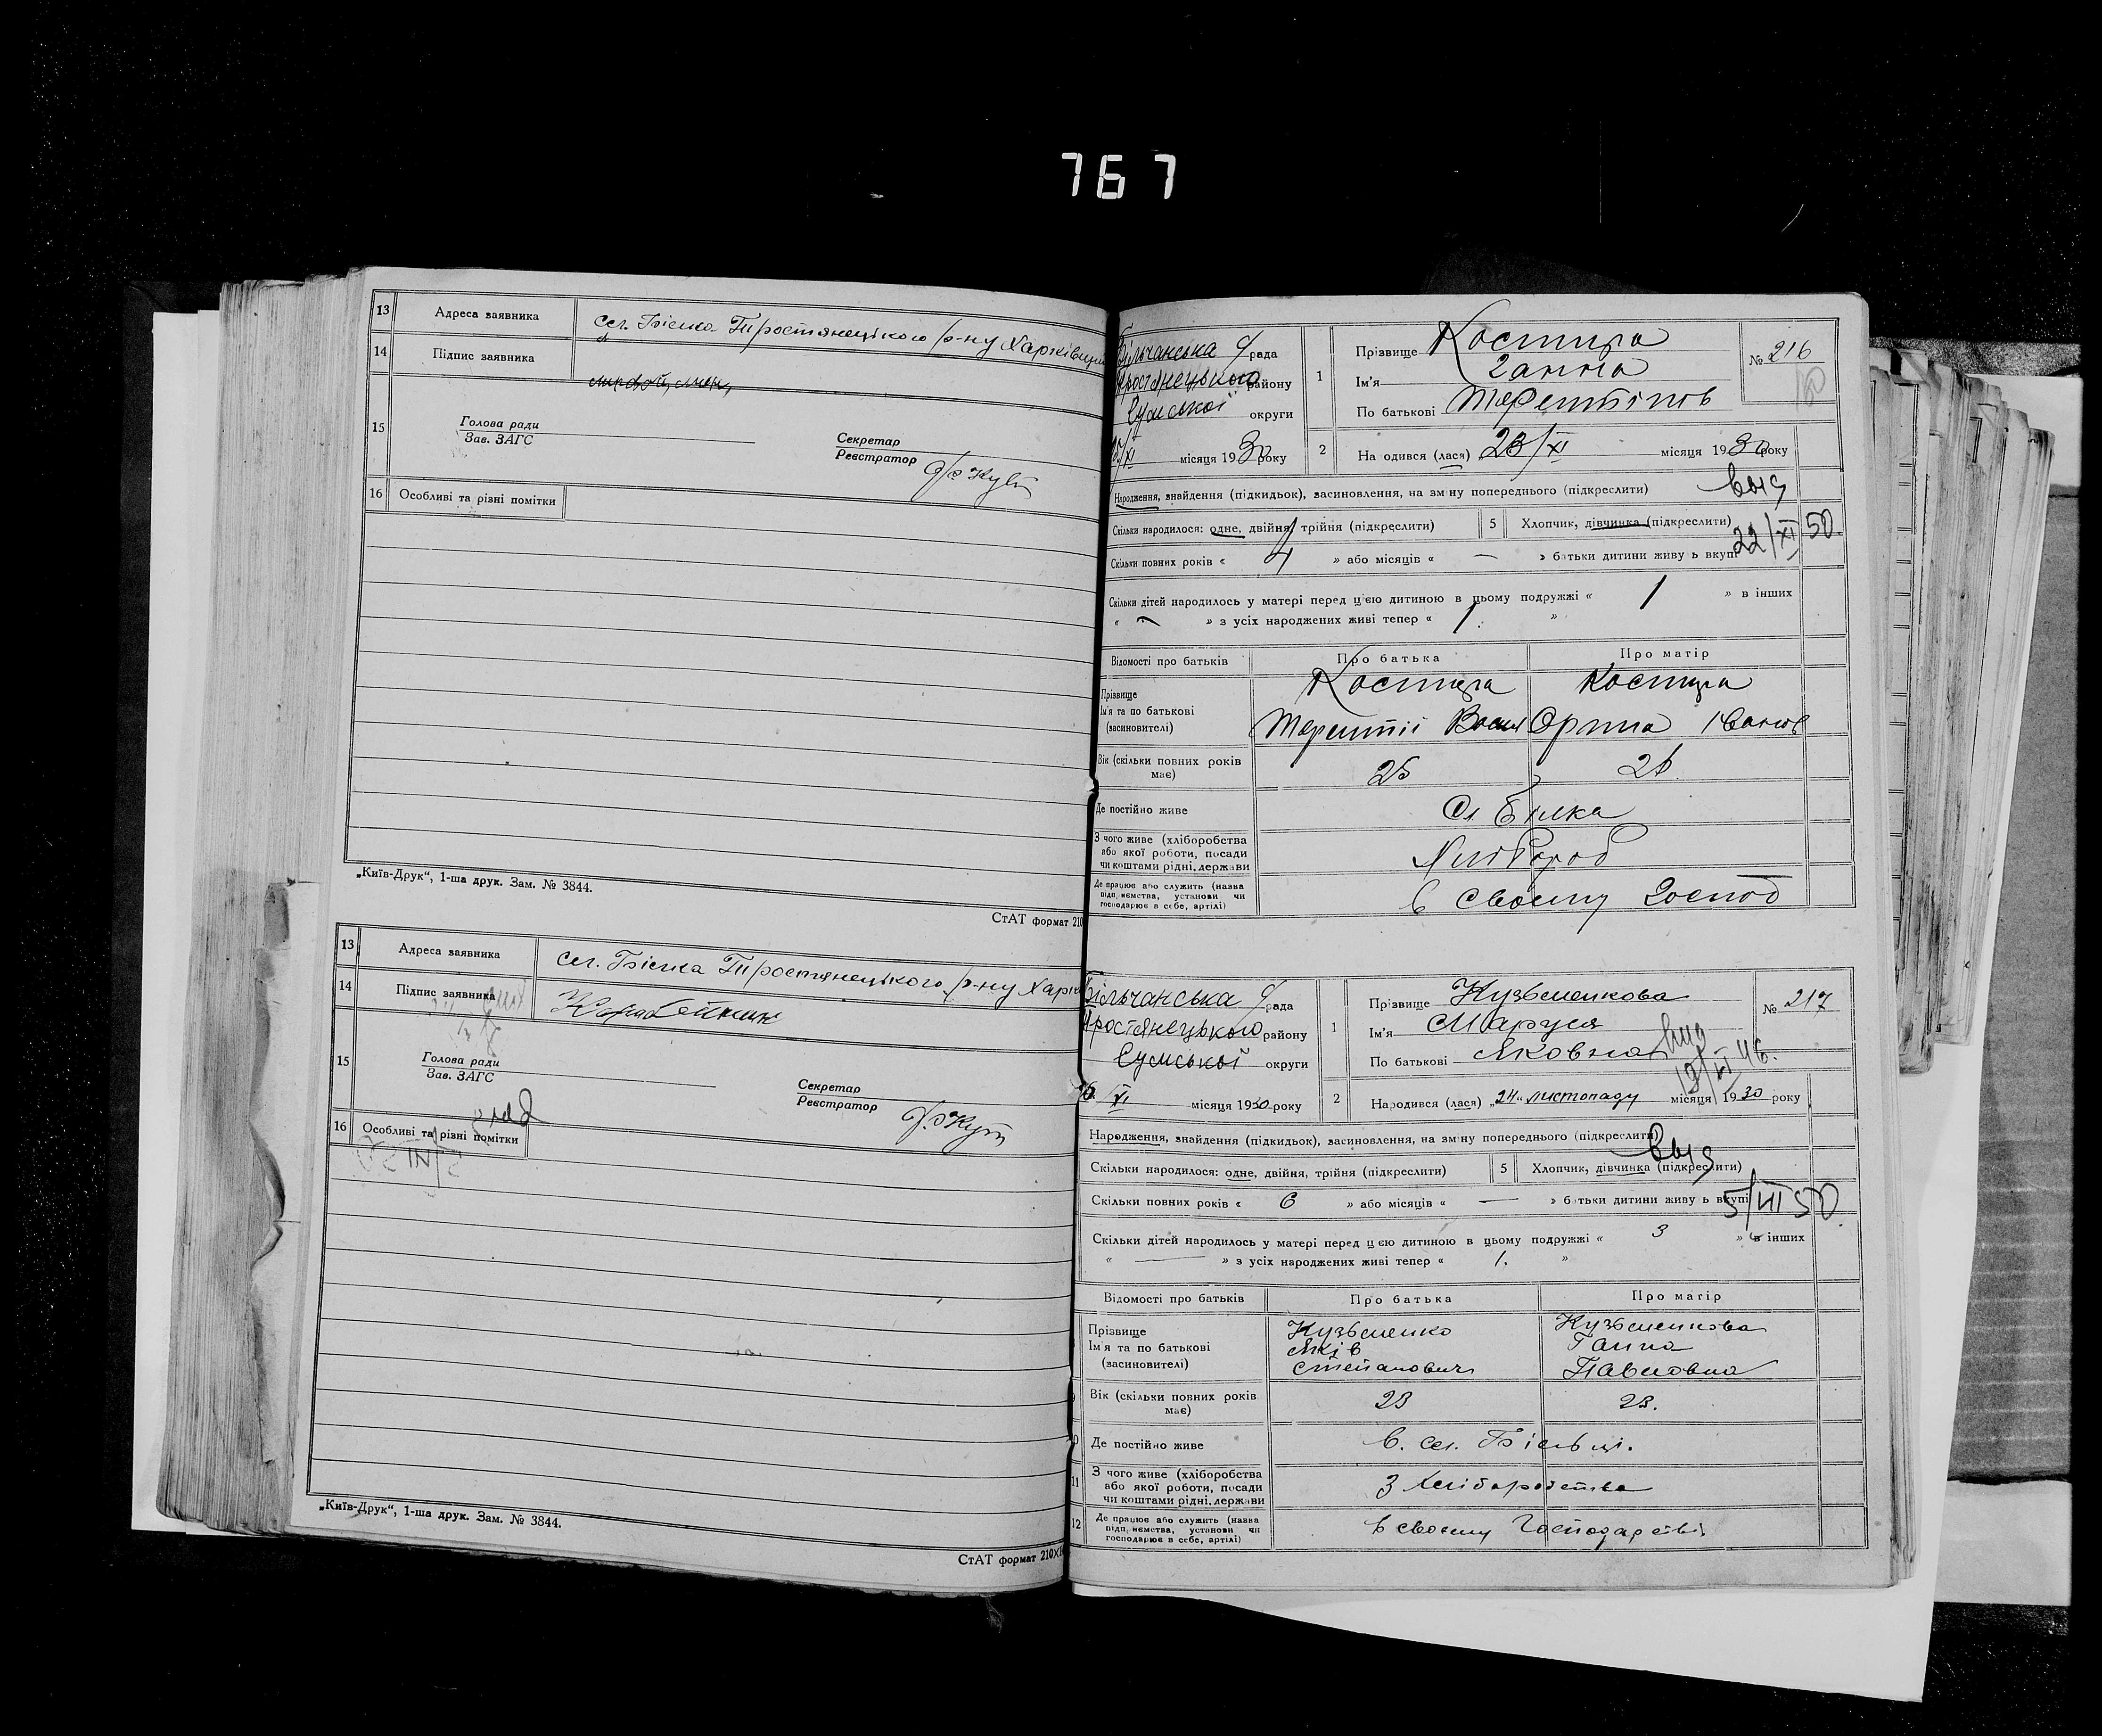 767
13 Адреса заявника сел. Білка Тростянецького р-ну Харківщин
14 Підпис заявника
15 Голова ради
Зав. ЗАГС
Секретар
Реєстратор
16 Особливі та різні помітки
„Київ-Друк“, 1-ша друк. Зам. № 3844.
СтАТ формат 210
13 Адреса заявника сел. Білка Тростянецького р-ну Харк
14 Підпис заявника
15 Голова ради
Зав. ЗАГС
Секретар
Реєстратор
16 Особливі та різні помітки
„Київ-Друк“, 1-ша друк. Зам. № 3844.
СтАТ формат 210×
Більчанська рада
Тростянецького району
Сумської округи
/XI місяця 1930 року
1 Прізвище Костира
Ім'я Ганна
По батькові Терентіїв
№ 216
2 На одився (лася) 23/XI місяця 1930 року
Народження, знайдення (підкидьок), засиновлення, на зміну попереднього (підкреслити)
Скільки народилося: одне, двійня, трійня (підкреслити) 5 Хлопчик, дівчинка (підкреслити)
22/XI 50.
Скільки повних років « 4 » або місяців « — » батьки дитини живу ь вкупі
Скільки дітей народилось у матері перед цією дитиною в цьому подружжі « 1 » в інших
« — » з усіх народжених живі тепер « 1. »
Відомості про батьків Про батька Про матір
Прізвище Костира Костира
Ім'я та по батькові Терентій Васил Орина Іванов
(засиновителі)
Вік (скільки повних років має) 25 26.
Де постійно живе Сл Білка
З чого живе (хліборобства або якої роботи, посади чи коштами рідні, держави Хлібороб
Де працює або служить (назва підприємства, установи чи господарює в себе, артілі) в своєму господ
Більчанська рада
Тростянецького району
Сумської округи
/XI місяця 1930 року
1 Прізвище Кузьменкова
Ім'я Маруся
По батькові Яковна
№ 217
2 Народився (лася) „24“ листопаду місяця 1930 року
Народження, знайдення (підкидьок), засиновлення, на зміну попереднього (підкреслити)
Скільки народилося: одне, двійня, трійня (підкреслити) 5 Хлопчик, дівчинка (підкреслити)
Скільки повних років « 6 » або місяців « — » батьки дитини живу ь вкупі
5/VII 50.
Скільки дітей народилось у матері перед цією дитиною в цьому подружжі « 3 » в інших
« — » з усіх народжених живі тепер « 1. »
Відомості про батьків Про батька Про матір
Прізвище Кузьменко Кузьменкова
Ім'я та по батькові Яків Ганна
(засиновителі) Степанович Павловна
Вік (скільки повних років має) 28 28.
Де постійно живе в. сел. Більці.
11 З чого живе (хліборобства або якої роботи, посади чи коштами рідні, держави З хліборобства
12 Де працює або служить (назва підприємства, установи чи господарює в себе, артілі) в своєму господарстві